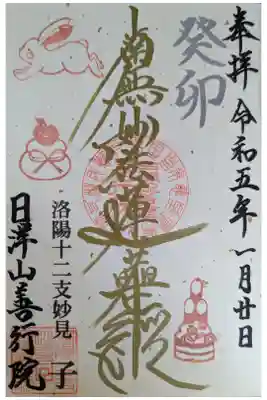 奉拝 令和五年一月廿日
癸卯
南無妙法蓮華経
洛陽十二支妙見 子
日洋山善行院